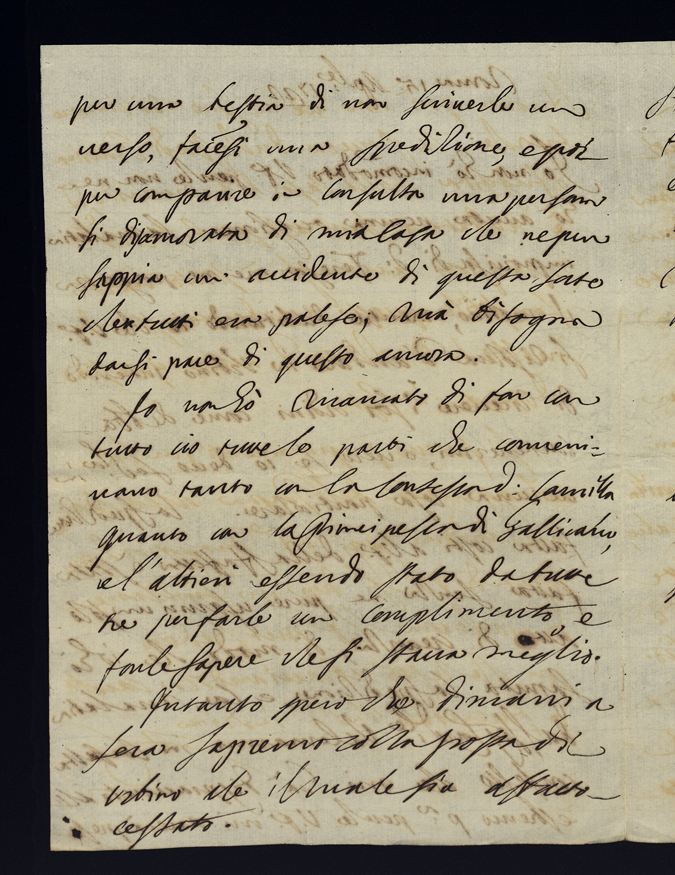 per una bestia di non scriverle un
verso, facesi una spedizione, e poi
per comparire in Consulta una persona
si disamorata di mia Casa che nepur
sappia un accidente di questa sorte
che a tutti era palese; mà bisogna
darsi pace di questo ancora.
Io non hò mancato di far con
tutto ciò tutte le parti che conveni=
vano tanto con la Contessa D: Camilla
quanto con la Principessa di Gallicano,
e l'altieri essendo stato da tutte
tre per farle un complimento, e
farle sapere che si stava meglio.
Intanto spero che dimani a
sera sapremo colla posta di
Urbino che il male sia affatto
cessato.